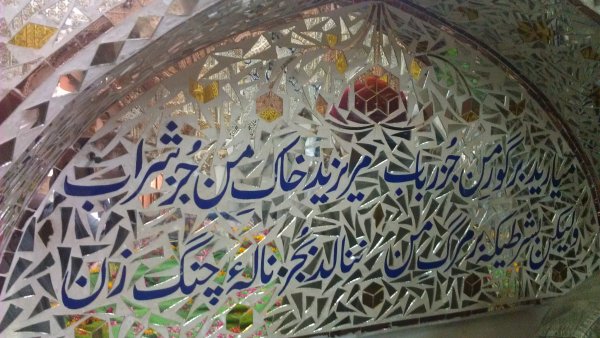 میارید بر گور من جز رباب مریزید خاکِ من جز شراب
ولیکن بشرطیکه در مرگ من ننالد بجز نالهٔ چنگ زن